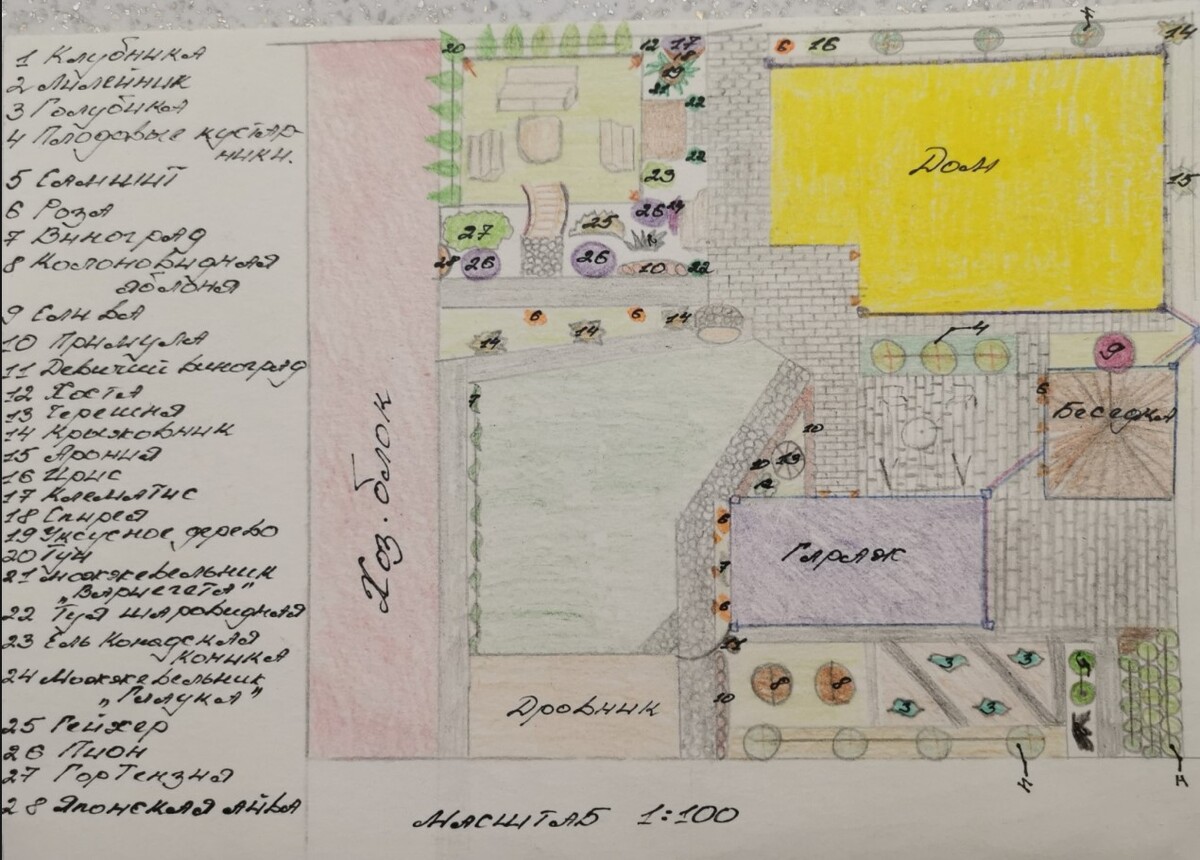 1 Клубника
2 Лилейник
3 Голубика
4 Плодовые кустар-
ники.
5 Самшит
6 Роза
7 Виноград
8 Колоновидная
яблоня
9 Слива
10 Примула
11 Девичий виноград
12 Хоста
13 Черешня
14 Крыжовник
15 Арония
16 Ирис
17 Клематис
18 Спирея
19 Уксусное дерево
20 Туи
21 Можжевельник
„Вариегата"
22 Туя шаровидная
23 Ель Конадская
коника
24 Можжевельник
„Глаука"
25 Гейхер
26 Пион
27 Гортензия
28 Японская айва
20
12 17
18
19
21
22
22
23
26 24
25
27
28 26
26
10
22
6 16
4
14
Дом
15
6
6
14
14
14
4
9
6
Беседка
7
10
13
10
12
Хоз. блок
6
7
6
Гараж
11
10
8
8
3
3
3
3
5
Дровник
4
Масштаб 1:100